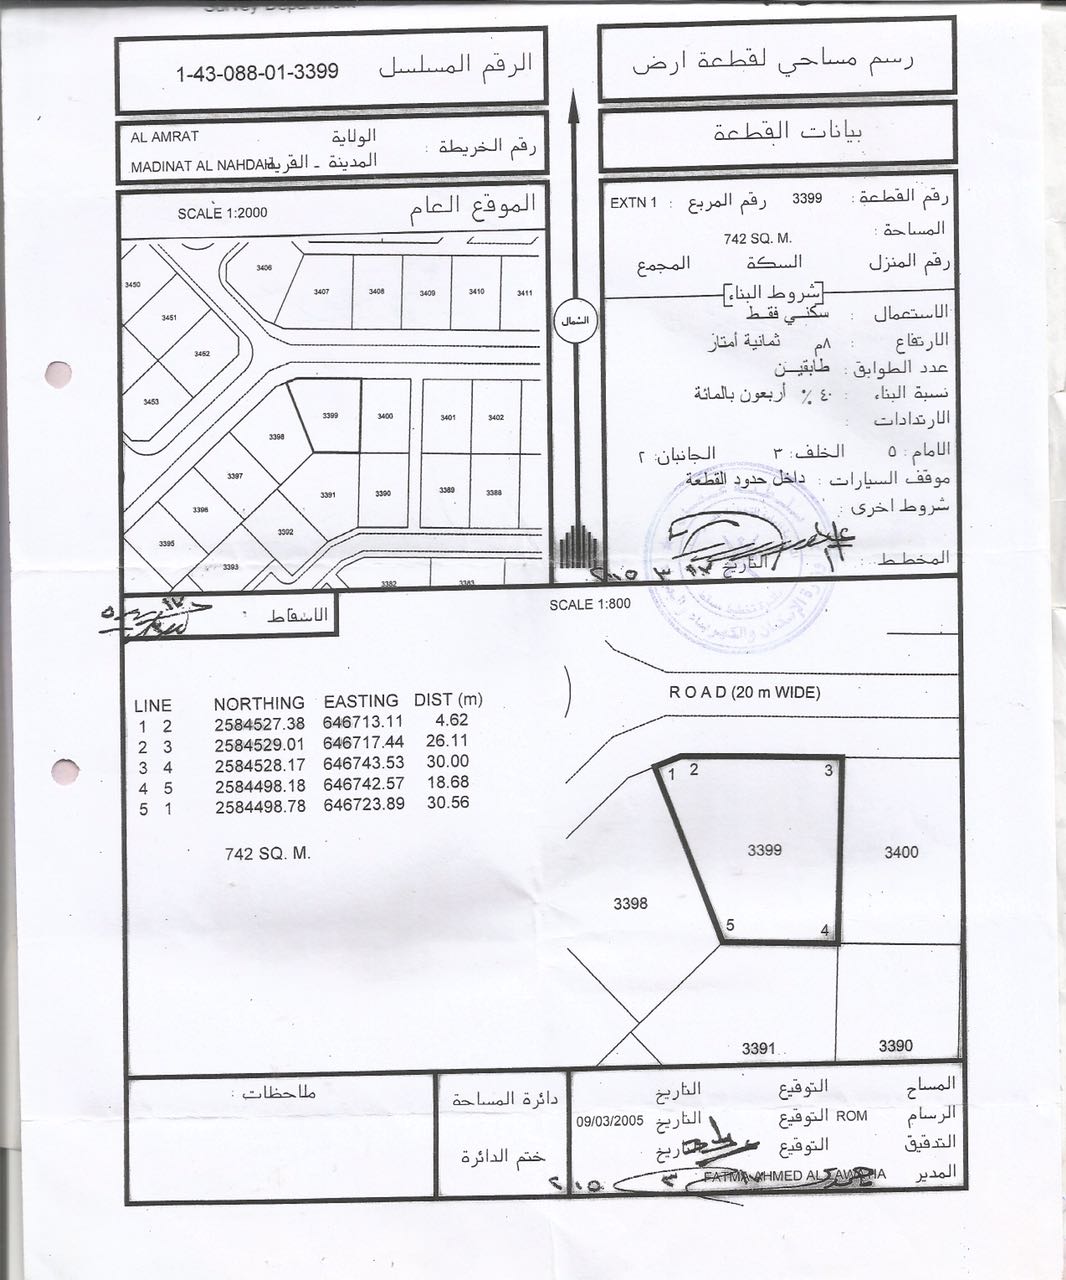 رسم مساحي لقطعة ارض
الرقم المسلسل 1-43-088-01-3399
بيانات القطعة
رقم الخريطة :
الولاية AL AMRAT
المدينة - القرية MADINAT AL NAHDAH
رقم القطعة : 3399 رقم المربع : EXTN 1
المساحة : 742 SQ. M.
رقم المنزل السكة المجمع
[شروط البناء]
الاستعمال : سكني فقط
الارتفاع : ٨م ثمانية أمتار
عدد الطوابق : طابقين
نسبة البناء : ٤٠ % أربعون بالمائة
الارتدادات :
الامام : ٥ الخلف : ٣ الجانبان : ٢
موقف السيارات : داخل حدود القطعة
شروط اخرى :
المخطط : التاريخ
الموقع العام SCALE 1:2000
3406
3450
3407 3408 3409 3410 3411
3451
3452
3453
3399 3400 3401 3402
3398
3397
3396
3395
3391 3390 3389 3388
3392
3393
3382 3383
الشمال
الاسقاط
SCALE 1:800
ROAD (20 m WIDE)
LINE NORTHING EASTING DIST (m)
1 2 2584527.38 646713.11 4.62
2 3 2584529.01 646717.44 26.11
3 4 2584528.17 646743.53 30.00
4 5 2584498.18 646742.57 18.68
5 1 2584498.78 646723.89 30.56
742 SQ. M.
1 2 3
3399
3400
3398
5 4
3391
3390
المساح التوقيع التاريخ
الرسام ROM التوقيع التاريخ 09/03/2005
التدقيق التوقيع التاريخ
المدير FATMA AHMED AL
دائرة المساحة
ختم الدائرة
ملاحظات :